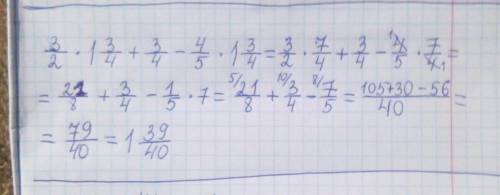 3/2 · 1 3/4 + 3/4 − 4/5 · 1 3/4 = 3/2 · 7/4 + 3/4 − ¹4/5 · 7/4₁ =
= 21/8 + 3/4 − 1/5 · 7 = ⁵⁄21/8 + ¹⁰⁄3/4 − ⁸⁄7/5 = 105+30−56/40 =
= 79/40 = 1 39/40